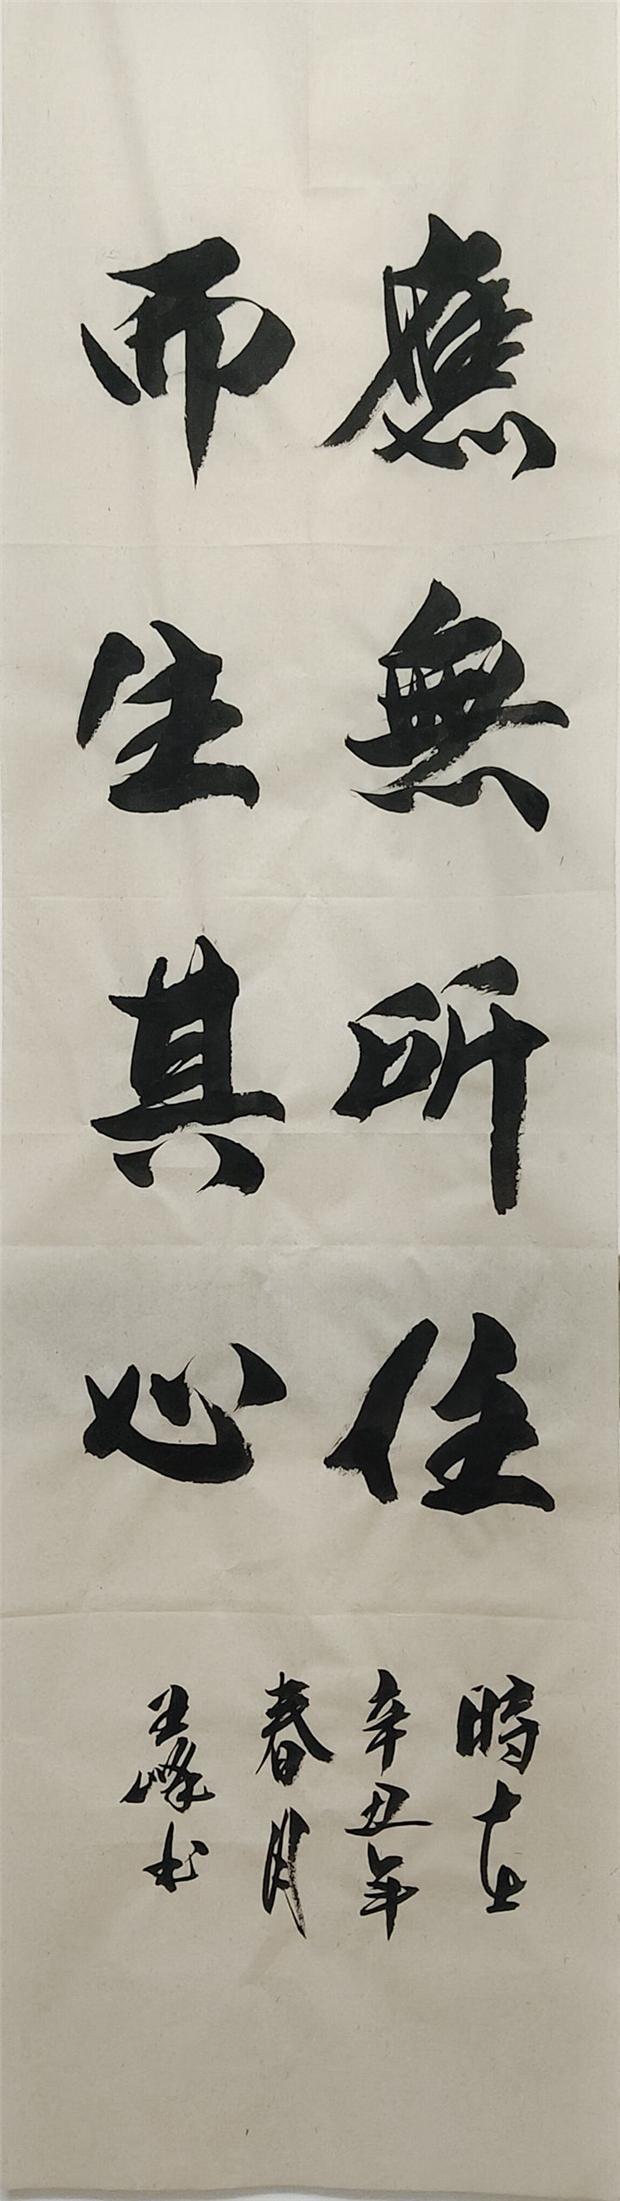 應無所住
而生其心
時在
辛丑年
春月
王峰书